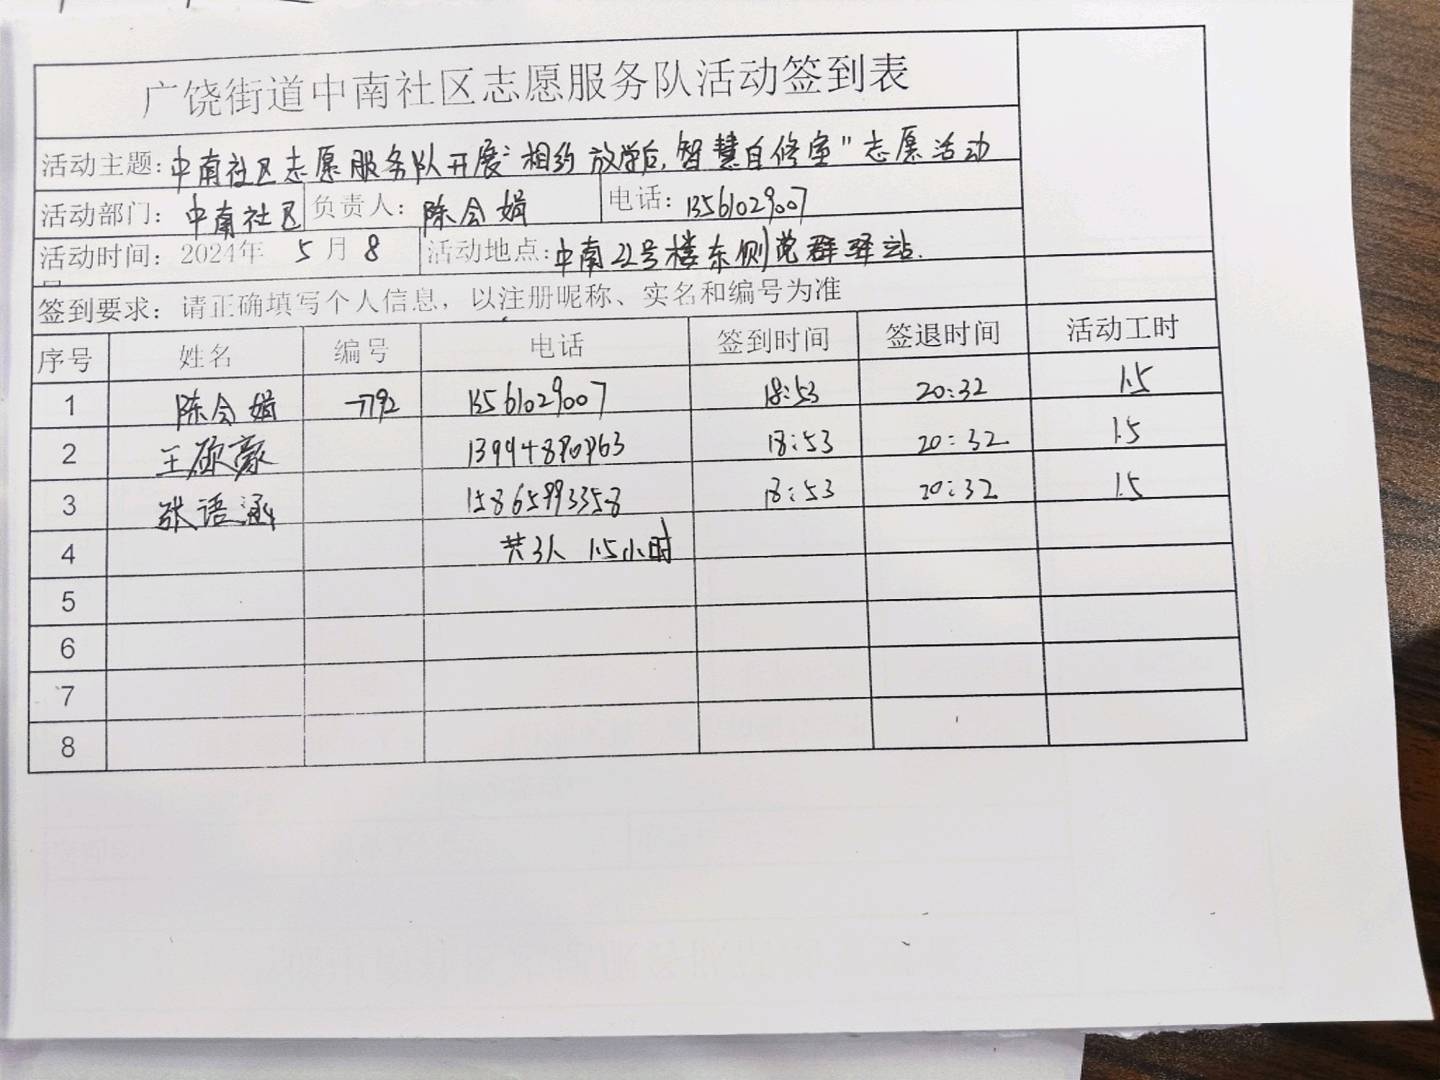 广饶街道中南社区志愿服务队活动签到表
活动主题：中南社区志愿服务队开展“相约放学后，智慧自修室”志愿活动
活动部门：中南社区 负责人：陈会娟 电话：13561029007
活动时间：2024年 5月8 活动地点：中南22号楼东侧党群驿站.
签到要求：请正确填写个人信息，以注册昵称、实名和编号为准
序号 姓名 编号 电话 签到时间 签退时间 活动工时
1 陈会娟 7792 13561029007 18:53 20:32 1.5
2 王硕豪 18:53 20:32 1.5
3 张语涵 15865993358 18:53 20:32 1.5
4 共3人 1.5小时
5
6
7
8